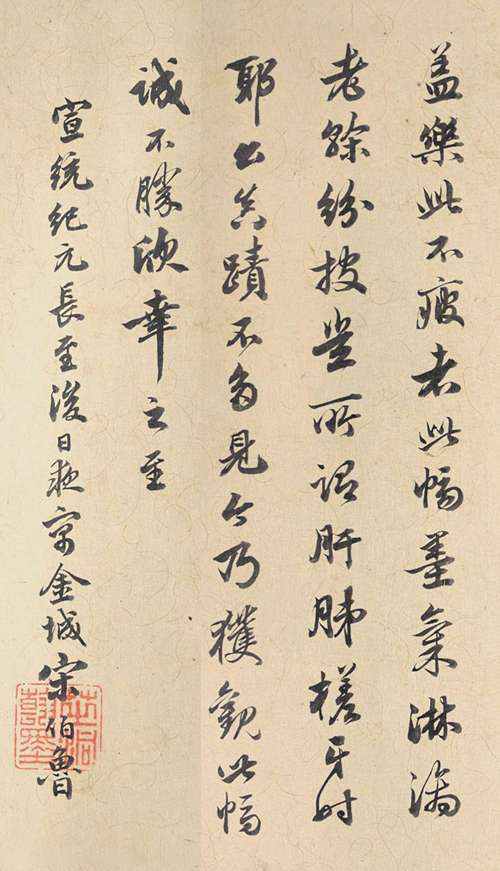 盖樂此不疲者此幅墨氣淋漓
老紛披豈所謂肝肺槎牙时
耶公真蹟不多見今乃獲觀此幅
誠不勝欣幸之至
宣統紀元長至後日寓金城宋伯魯